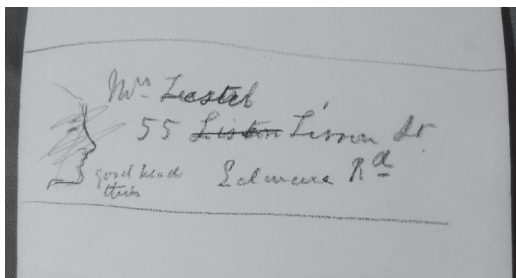 Mrs Lestel
55 Liston Lisson St.
good head
this
Edmware Rd